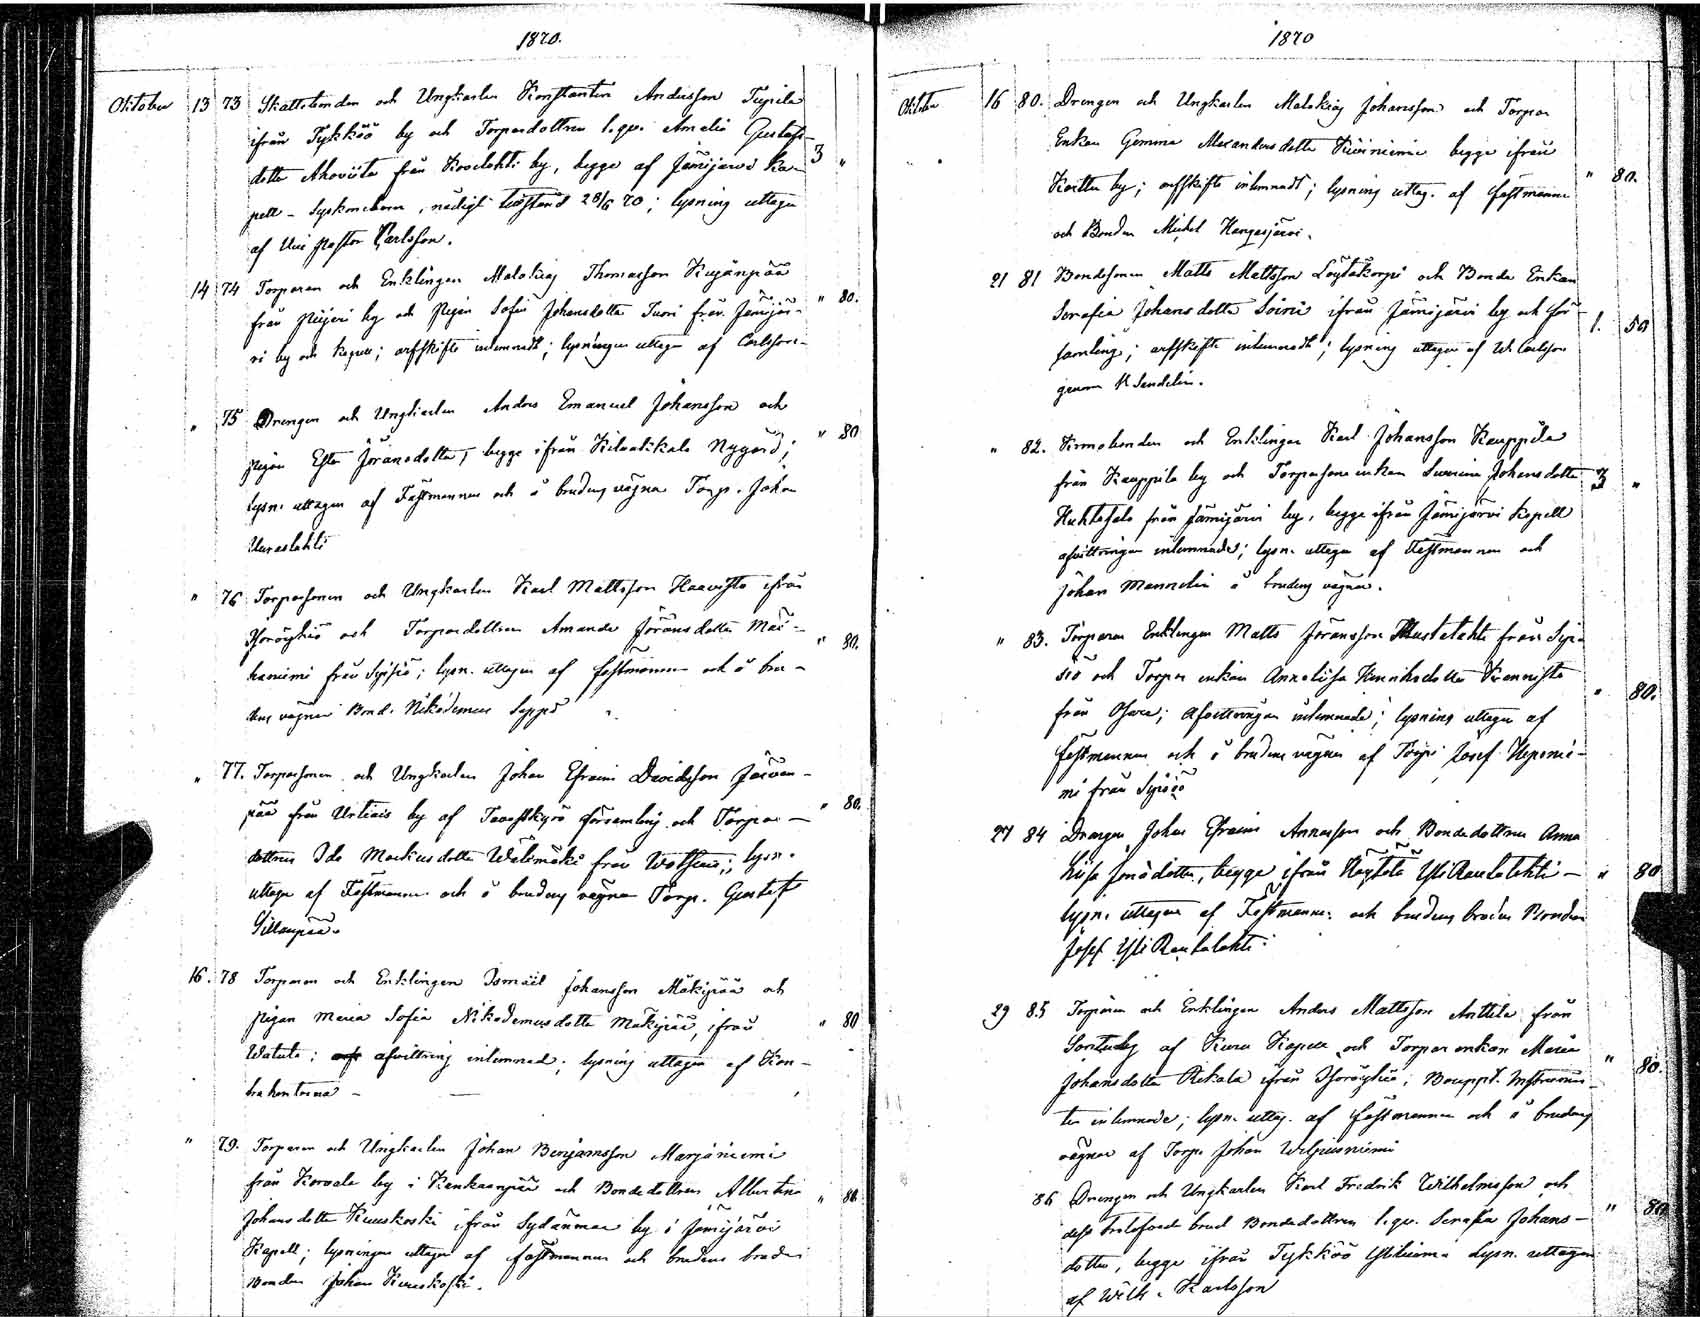 1870.
Oktober 13 73 Skattebonden och Ungkarlen Konstantin Andersson Tupila
ifrån Tykköö by och Torparedottren l.qv. Amalia Gustafs-
dotter Ahoviita från Kovelahti by, begge af Jämijärvi Ka- 3 "
pell - Syskonebarn, nådigt tillstånd 28/6 70; lysning uttagen
af Vice Pastor Carlsson.
14 74 Torparen och Enklingen Malakias Thomasson Kujanpää
från by och Pigan Sofia Johansdotter Tuori från Jämijär- " 80.
vi by och kapell; arfskifte inlemnadt; lysningen uttagen af Carlsson-
" 75 Drengen och Ungkarlen Anders Emanuel Johansson och
pigan Ester Jöransdotter, begge ifrån Kilvakkala Nygård; " 80
lysn. uttagen af Fästmannen och å brudens vägnar Torp. Johan
Uuraslahti
" 76 Torparsonen och Ungkarlen Karl Mattsson Haavisto ifrån
Osoröykiö och Torparedottren Amanda Jöransdotter Mä- " 80.
kiniemi från Sipsiö; lysn. uttagen af fästmannen och å bru-
dens vägnar Bond. Nikodemus Seppä
" 77. Torparsonen och Ungkarlen Johan Efraim Davidsson Järven-
pää från Urtiais by af Tavastkyrö församling och Torpar- " 80.
dottren Ida Markusdotter Välimäki från; lysn.
uttagen af Fästmannen och å brudens vägnar Torp. Gustaf
Sillanpää.
16. 78 Torparen och Enklingen Ismaël Johansson Mäkipää och
pigan Maria Sofia Nikodemusdotter Mäkipää, ifrån " 80
Vatula; afvittring inlemnad; lysning uttagen af Kon-
trahenterna -
" 79. Torparen och Ungkarlen Johan Benjamsson Marjaniemi
från Korvala by i Kankaanpää och Bondedottren Albertina " 80
Johansdotter Kuuskoski ifrån Sydänmaa by i Jämijärvi
Kapell; lysningen uttagen af fästmannen och brudens broder
Bonden Johan Kuuskoski.
1870
Oktober 16 80. Drengen och Ungkarlen Malakias Johansson och Torpar
Enkan Gemima Alexandersdotter Kiviniemi begge ifrån
by; arfskifte inlemnadt; lysning uttag. af fästmannen " 80.
och Bonden Michel Kangasjärvi.
21 81 Bondesonen Matts Mattsson Löytäkorpi och Bonde Enkan
Serafia Johansdotter Soini ifrån Jämijärvi by och för-
samling; arfskifte inlemnadt; lysning uttagen af W. Carlsson 1. 50
genom K Sandelin.
" 82. Kronobonden och Enklingen Karl Johansson Kauppila
från Kauppila by och Torparsone enkan Johansdotter 3 "
Huhtasalo från Jämijärvi by, begge ifrån Jämijärvi Kapell
afvittringen inlemnade; lysn. uttagen af Fästmannen och
Johan Mannelin å brudens vägnar.
" 83. Torparen Enklingen Matts Jöransson Mustalahti från Sip-
siö och Torpar enkan Annaliisa Henriksdotter Kanniste
från Osara; Afvittringen inlemnade; lysning uttagen af " 80.
fästmannen och å brudens vägnar af Torp. Josef Haponie-
mi från Sipsiö
27 84 Drengen Johan Efraim Andersson och Bondedottren Anna
Liisa Jonadotter, begge ifrån Yli Rautalahti - " 80
lysn. uttagen af Fästmannen och brudens broder Bonden
Josef Yli Rautalahti.
29 85 Torparen och Enklingen Anders Mattsson Anttila från
by af Kuru Kapell och Torpar enkan Maria
Johansdotter Rekala ifrån Osoröykiö; Bouppt. Instrumen- " 80.
ter inlemnade; lysn. uttag. af fästmannen och å brudens
vägnar af Torp. Johan Vilpusniemi
86 Drengen och Ungkarlen Karl Fredrik Wilhelmsson och
dess trolofvade brud Bondedottren l.qv. Serafia Johans- " 80
dotter, begge ifrån Tykköö Yliluoma Lysn. uttagen
af Wilh. Karlsson